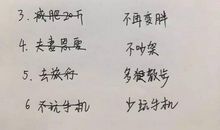 3. 减肥20斤 不再变胖
4. 夫妻恩爱 不吵架
5. 去旅行 多梗散步
6 不玩手机 少玩手机